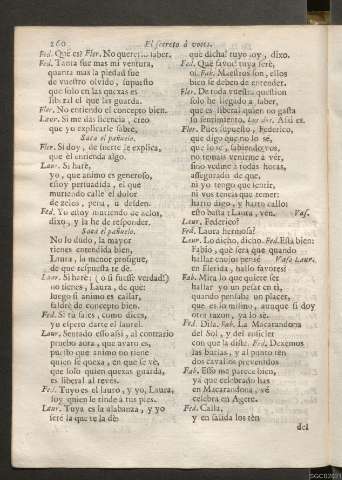 260 El secreto à voces.
Fed. Què es? Flor. No quererlo saber.
Fed. Tanta fue mas mi ventura,
quanta mas la piedad fue
de vuestro olvido, supuesto
que solo en las quexas es
liberal el que las guarda.
Flor. No entiendo el concepto bien.
Laur. Si me dàs licencia, creo
que yo explicarle sabrè,
Saca el pañuelo.
Flor. Sì doy, de suerte le explica,
que èl entienda algo.
Laur. Si harè,
yo, que animo es generoso,
estoy persuadida, el que
muriendo calle el dolor
de zelos, pena, ù desden.
Fed. Yo estoy muriendo de zelos,
dixo, y la he de responder.
Saca el pañuelo.
No lo dudo, la mayor
tienes entendida bien,
Laura, la menor prosigue,
de que respuesta te dè.
Laur. Si harè: (ò si fuesse verdad!)
no tienes, Laura, de què:
luego si animo es callar,
saldrè de concepto bien.
Fed. Si tù sales, como dices,
yo espero darte el laurel.
Laur. Sentado esso assi, al contrario
pruebo aora, que avaro es,
puesto que animo no tiene
quien se quexa, en que se vè,
que solo quien quexas guarda,
es liberal al revès.
Fed. Tuyo es el lauro, y yo, Laura,
soy quien le rinde à tus pies.
Laur. Tuya es la alabanza, y yo
serè la que te la dè
que dicha! tuyo soy, dixo.
Fed. Què favor! tuya serè,
oì. Fab. Maestros son, ellos
bien se deben de entender.
Flor. De toda vuestra question
solo he llegado à saber,
que es liberal quien no gasta
su sentimiento. Los dos. Assi es.
Flor. Pues supuesto, Federico,
que digo que no lo sè,
que lo sè, sabiendo vos,
no temais venirme à vèr,
sino vedme à todas horas,
assegurado de que,
ni yo tengo que sentir,
ni vos teneis que temer:
harto digo, y harto callo:
esto basta: Laura, ven. Vas.
Laur. Federico?
Fed. Laura hermosa?
Laur. Lo dicho, dicho. Fed. Està bien:
Fabio, què serà que quando
hallar enojos pensè Vase Laur.
en Flerida, hallo favores?
Fab. Mira lo que quiere ser
hallar yo un pesar en tì,
quando pensaba un placer,
que es lo mismo, aunque si doy
otra razon, ya lo sè.
Fed. Dila. Fab. La Macarandona
del Sol, y del rosicler
con que la diste. Fed. Dexemos
las burlas, y al punto tèn
dos cavallos prevenidos
Fab. Esso me parece bien,
ya que celebrado has
en Macarandona, vè
celebra en Agere.
Fed. Calla,
y en salida los tèn
del